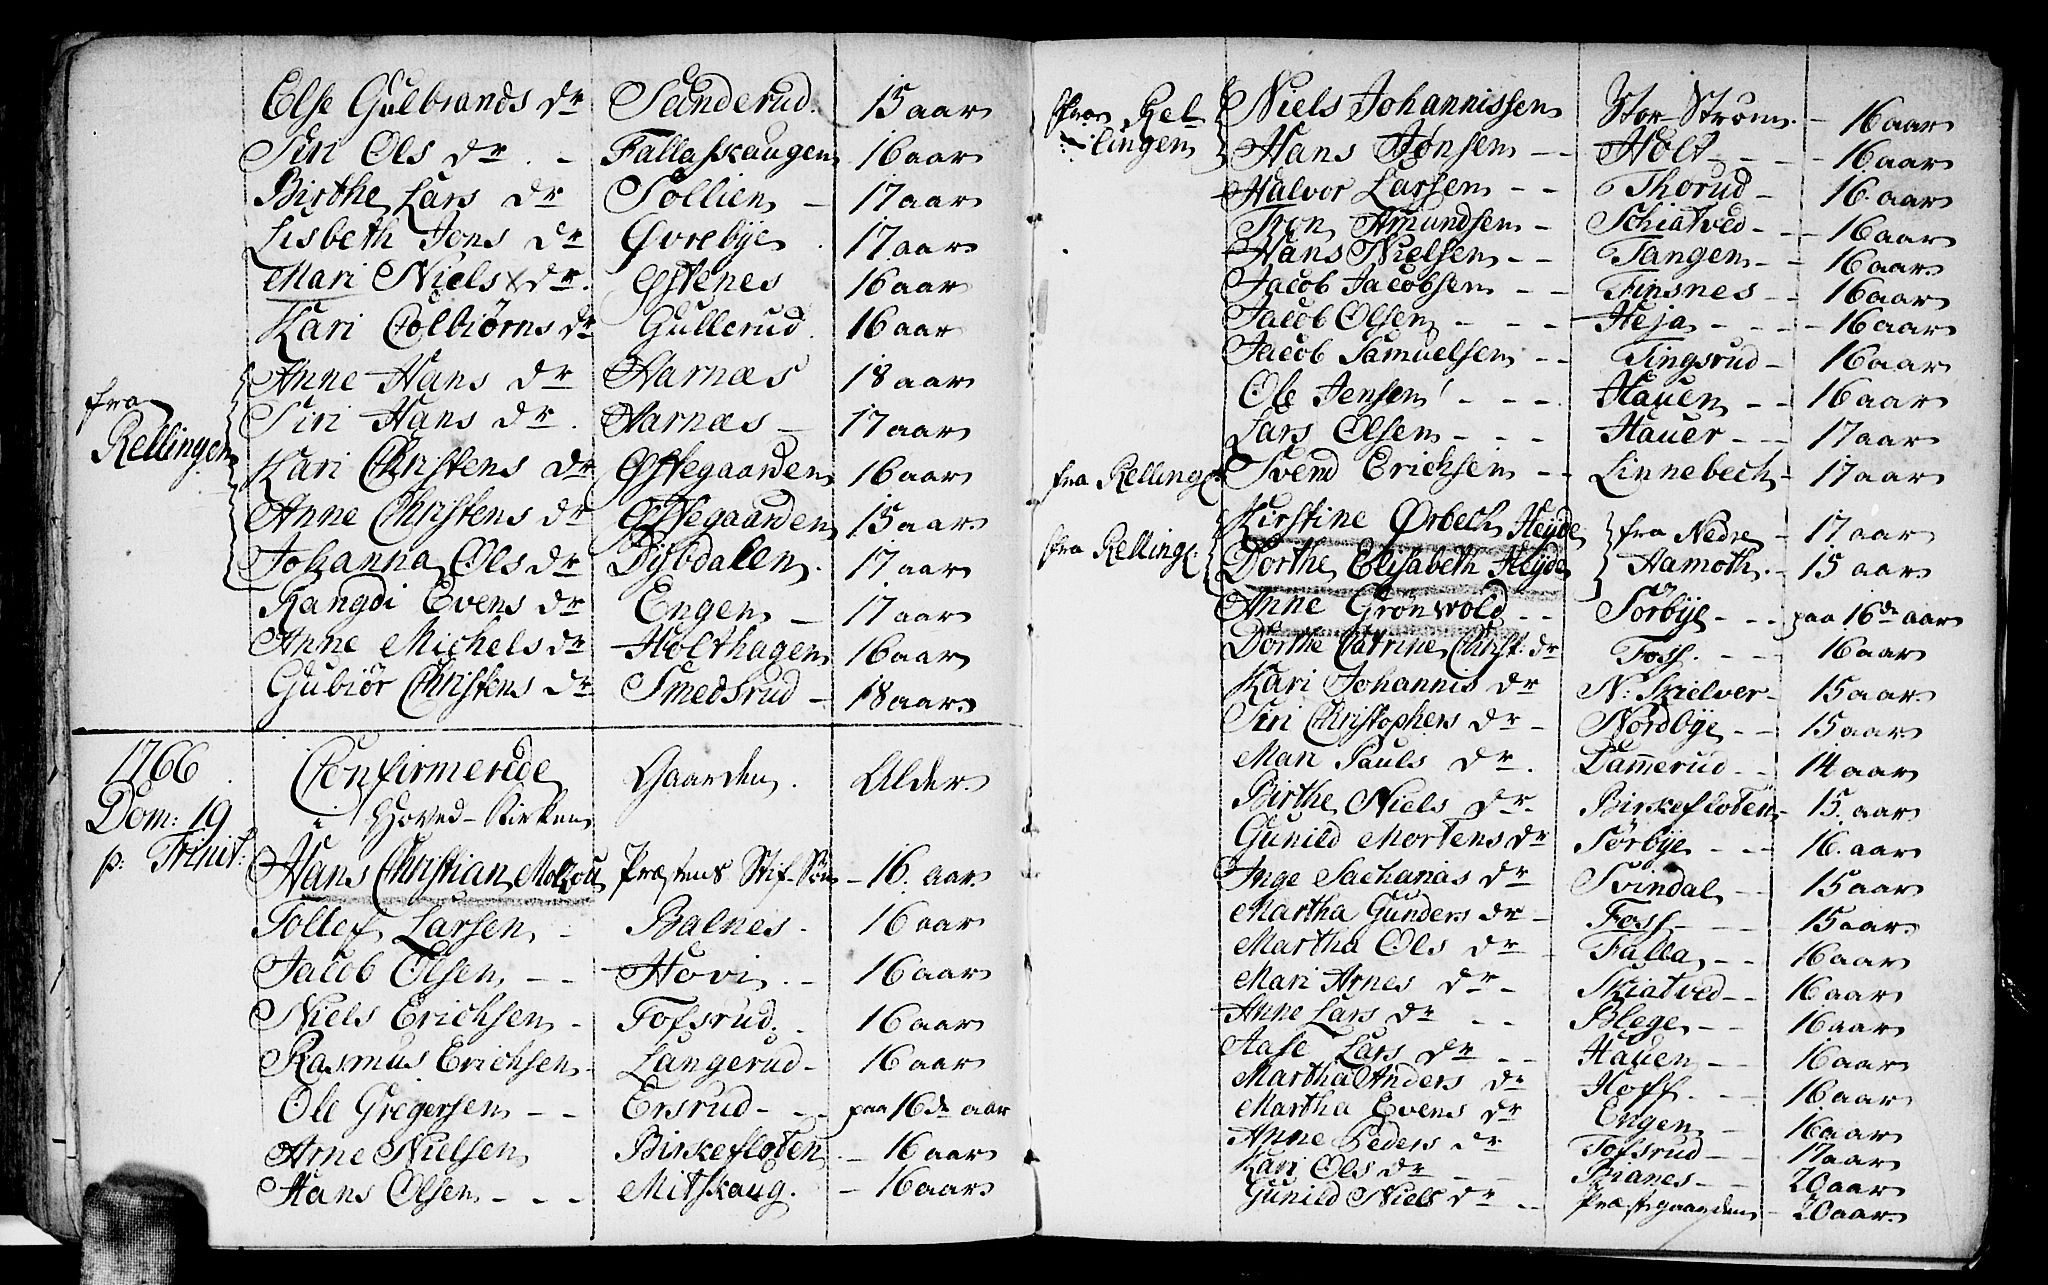 Else Gulbrands dr Sanderud. 15 aar
Siri Ols dr. - Fallaskaugen 16 aar
Birthe Lars dr Sollien - 17 aar
Lisbeth Jons dr Øvrebye. 17 aar
Mari Niels dr. Østenes 16 aar
Kari Colbiørns dr Gullerud. 16 aar
Anne Hans dr Varnæs 18 aar
fra Siri Hans dr. Varnæs - 17 aar
Rellingen Kari Christens dr Østegaarden 16 aar
Anne Christens dr Østegaarden 15 aar
Johanna Ols dr Dysdalen. 17 aar
Rangdi Evens dr Engen - 17 aar
Anne Michels dr Holthagen 16 aar
Gubiør Christens dr Smedsrud - 18 aar
1766. Confirmerede Gaarden. Alder.
Dom: 19 i Hoved-Kirken
p: Trinit: Hans Christian Præstens Stif-Søn - 16. aar.
Tollef Larsen - Balnes. 16 aar
Jacob Olsen - - Hovi. - 16 aar
Niels Erichsen - Tofsrud. - 16 aar
Rasmus Erichsen - Langerud - 16 aar
Ole Gregersen - - Ersrud - - paa 16de aar
Arne Nielsen Birkefloten. - 16 aar
Hans Olsen - - - Mitskaug. - 16 aar.
fra Rel Niels Johannissen Stor-Strøm. - 16 aar
-lingen Hans Jønsen - - Holt - - - 16 aar
Halvor Larsen - - Thorud - 16. aar
Tron Amundsen - Schiatved - - 16 aar
Hans Nielsen - - Tangen - - 16 aar.
Jacob Jacobsen - - Finsnes - - 16 aar
Jacob Olsen - - - Heja - - - 16 aar
Jacob Samuelsen - - Tingsrud - 16 aar
Ole Jensen - - - Hauen - - 16 aar
Lars Olsen - - - Hauer - - 17 aar
fra Relling: Svend Erichsen - - Linnebech - 17 aar
Kirstine Ørbech Heyde fra Nedre - 17 aar
fra Relling: Dorthe Elisabeth Heyde Hamoth. - 15 aar
Anne Grønwold - - Sørbye - - - paa 16de aar
Dorthe Catrine Christ: dr Foss. - - - 16 aar
Kari Johannis dr N: Skielver - 15 aar
Siri Christophers dr - Nordbye - - 15 aar
Mari Pauls dr. Dammerud - - 14 aar
Birthe Niels dr - Birkefloten - 15. aar
Gunild Mortens dr Sørbye - - - 16. aar
Inge Sachanas dr Svindal - - 15 aar
Martha Gunders dr - Foss - - - 15 aar.
Martha Ols dr - Falla - - 16 aar
Mari Arnes dr - Skiatved - - 16 aar
Anne Lars dr - - Blege - - 16 aar
Aase Lars dr - - Hauen - - 16 aar
Martha Anders dr Hoff. - - 16 aar
Martha Evens dr Engen - 16 aar
Anne Peders dr Tofsrud - - 17 aar
Kari Ols dr - - Bianes - - 20 aar
Gunild Niels dr - - Præstegaarden - 20 aar.